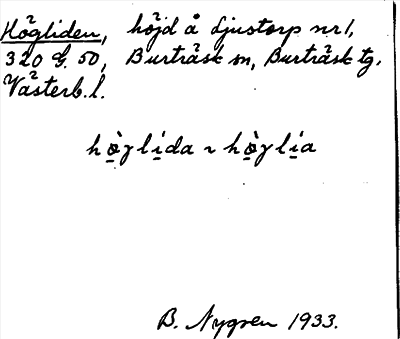 Högliden, höjd å Ljustorp nr 1,
320 G. 50, Burträsk sn, Burträsk tg,
Västerb. l.
hò̲γli̲da ~ hò̲γli̲a
B. Nygren 1933.